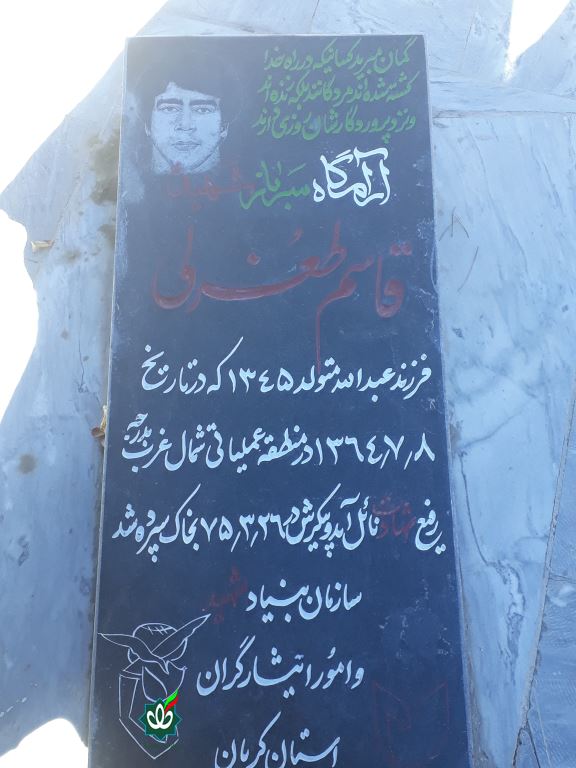 گمان مبرید کسانیکه در راه خدا
کشته شده اند مردگانند بلکه زنده اند
و نزد پروردگارشان روزی دارند
آرامگاه سرباز شهید
قاسم طغرلی
فرزند عبدالله متولد ۱۳۴۵ که در تاریخ
۱۳۶۴٫۷٫۸ در منطقه عملیاتی شمال غرب بدرجه
رفیع شهادت نائل آمد و پیکرش در ۷۵٫۳٫۲۶ بخاک سپرده شد
سازمان بنیاد شهید
و امور ایثارگران
استان کرمان